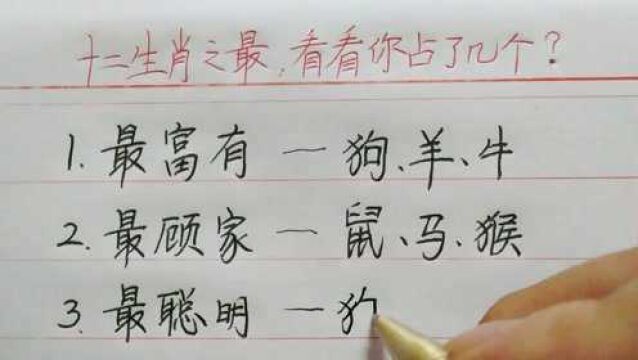 十二生肖之最,看看你占了几个?
1.最富有一狗、羊、牛
2.最顾家一鼠、马、猴
3.最聪明一